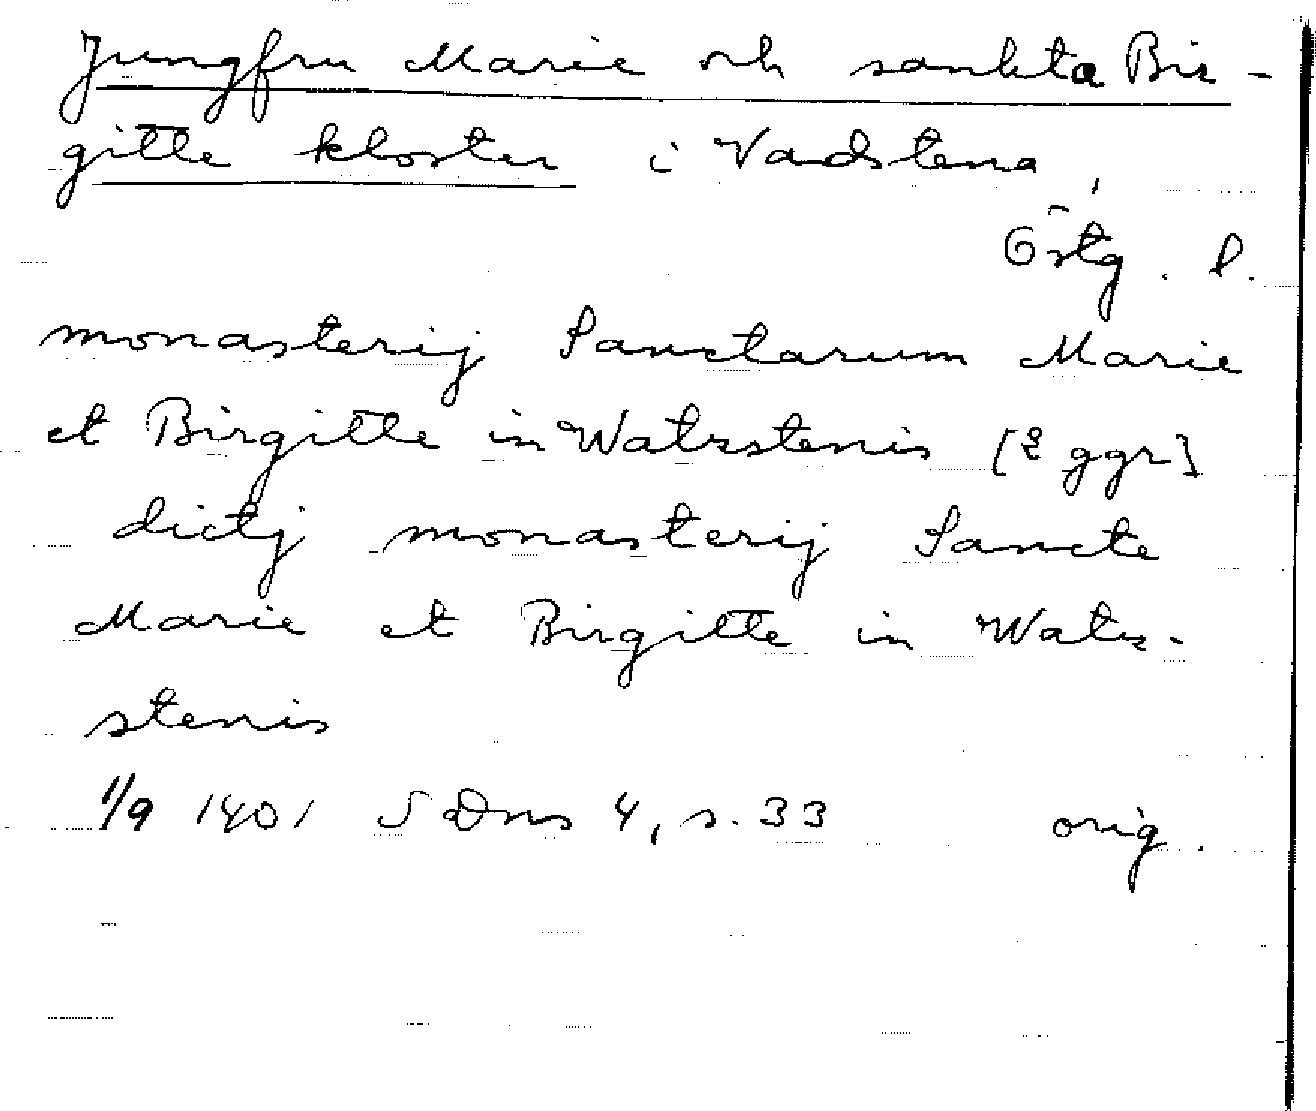 Jungfru Marie och sankta Bir-
gitte kloster i Vadstena,
Östg. l.
monasterij Sanctarum Marie
et Birgitte in Watzstenis [2 ggr]
dictj monasterij Sancte
Marie et Birgitte in Watz-
stenis
1/9 1401 SDns 4, s. 33 orig.